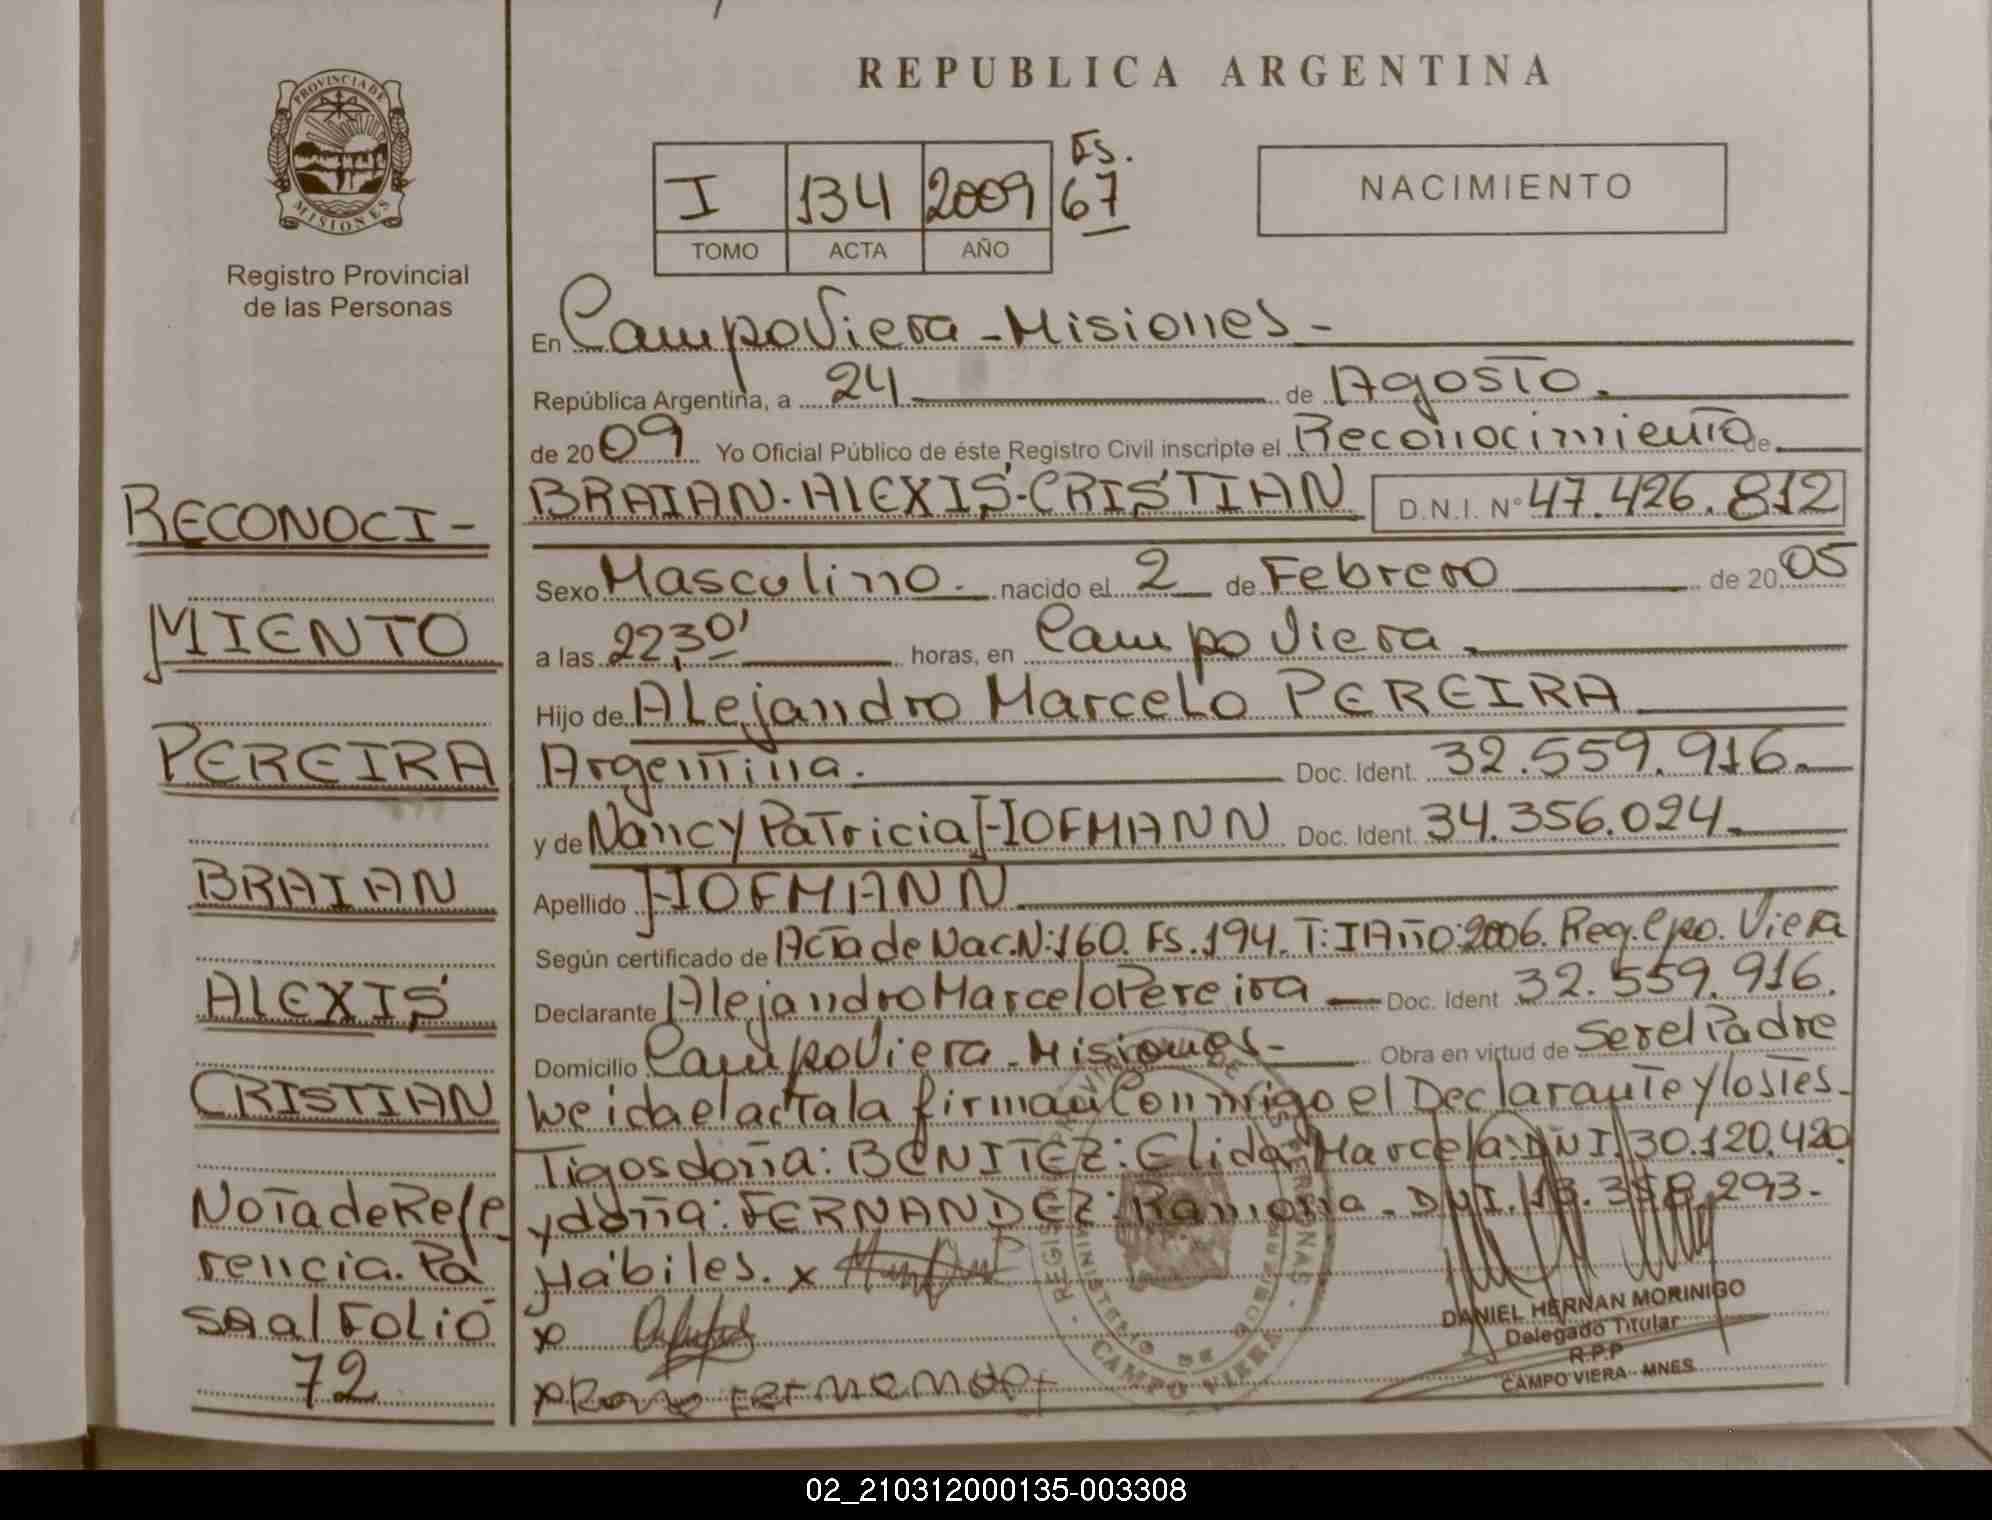 REPUBLICA ARGENTINA
PROVINCIA DE
MISIONES
Registro Provincial
de las Personas
I 134 2009 Fs. 67
TOMO ACTA AÑO
NACIMIENTO
En Campo Viera - Misiones -
República Argentina, a 24 de Agosto.
de 2009 Yo Oficial Público de éste Registro Civil inscripte el Reconocimiento de
BRAIAN-ALEXIS-CRISTIAN D.N.I. Nº 47.426.812
Sexo Masculino. nacido el 2 de Febrero de 2005
a las 22,30' horas, en Campo Viera.
Hijo de Alejandro Marcelo PEREIRA
Argentina. Doc. Ident. 32.559.916.
y de Nancy Patricia HOFMANN Doc. Ident. 34.356.024.
Apellido HOFMANN
Según certificado de Acta de Nac. N: 160. Fs. 194. T: I Año: 2006. Reg. Cpo. Viera
Declarante Alejandro Marcelo Pereira Doc. Ident 32.559.916.
Domicilio Campo Viera - Misiones - Obra en virtud de Ser el Padre
Leida el acta la firman Conmigo el Declarante y los Tes-
Tigos doña: BENITEZ: Elida Marcela: DNI. 30.120.420
y doña: FERNANDEZ: Ramona. DNI. 13.358.293.
Hábiles. x
x
x
DANIEL HERNAN MORINIGO
Delegado Titular
R.P.P
CAMPO VIERA - MNES
CAMPO VIERA
RECONOCI-
MIENTO
PEREIRA
BRAIAN
ALEXIS
CRISTIAN
Nota de Refe
rencia. Pa
SA al Folio
72
02_210312000135-003308